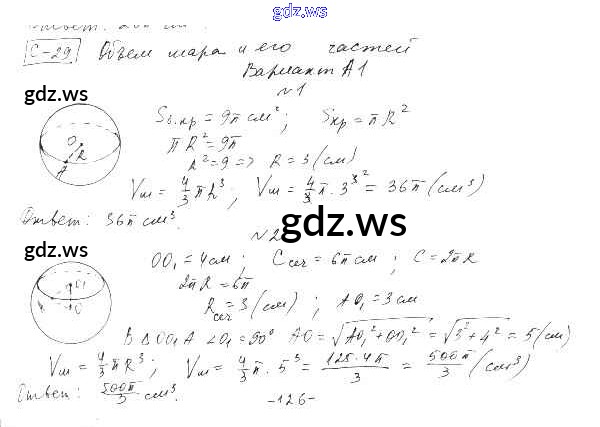 gdz.ws
С-29 Объем шара и его частей
Вариант А1
№1
Sб.кр = 9π см²; Sкр = πR²
πR² = 9π
R² = 9 => R = 3 (см)
O
R
A
gdz.ws
Vш = 4/3 πR³; Vш = 4/3 π · 3³ = 36π (см³)
Ответ: 36π см³.
gdz.ws
№2
gdz.ws
OO₁ = 4 см; Cсеч = 6π см; C = 2πR
2πR = 6π
Rсеч = 3 (см); AO₁ = 3 см
В Δ OO₁A ∠O₁ = 90° AO = √AO₁² + OO₁² = √3² + 4² = 5 (см)
Vш = 4/3 πR³; Vш = 4/3 π · 5³ = 125·4π/3 = 500π/3 (см³)
Ответ: 500π/3 см³.
-126-
gdz.ws